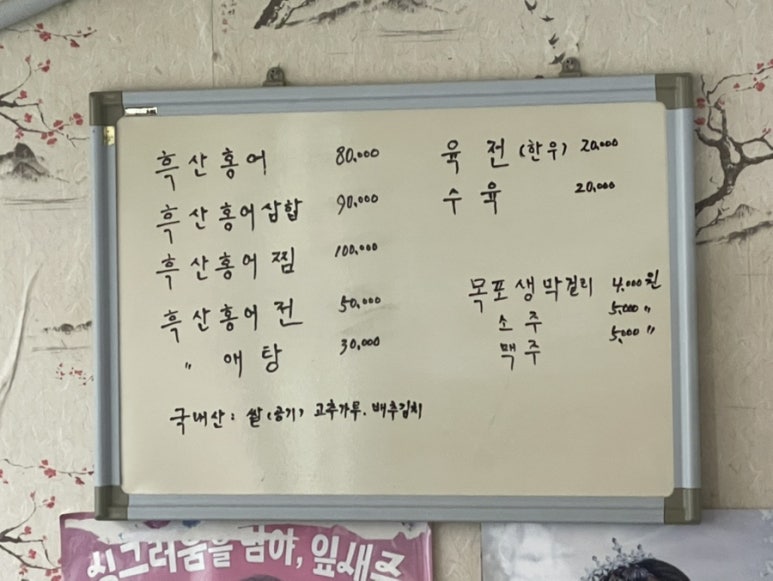 흑산홍어 80,000
흑산홍어삼합 90,000
흑산홍어 찜 100,000
흑산홍어 전 50,000
〃 애탕 30,000
국내산: 쌀(공기) 고추가루, 배추김치
육전(한우) 20,000
수육 20,000
목포생막걸리 4,000원
소주 5,000 〃
맥주 5,000 〃
싱그러움을 담아, 잎새주